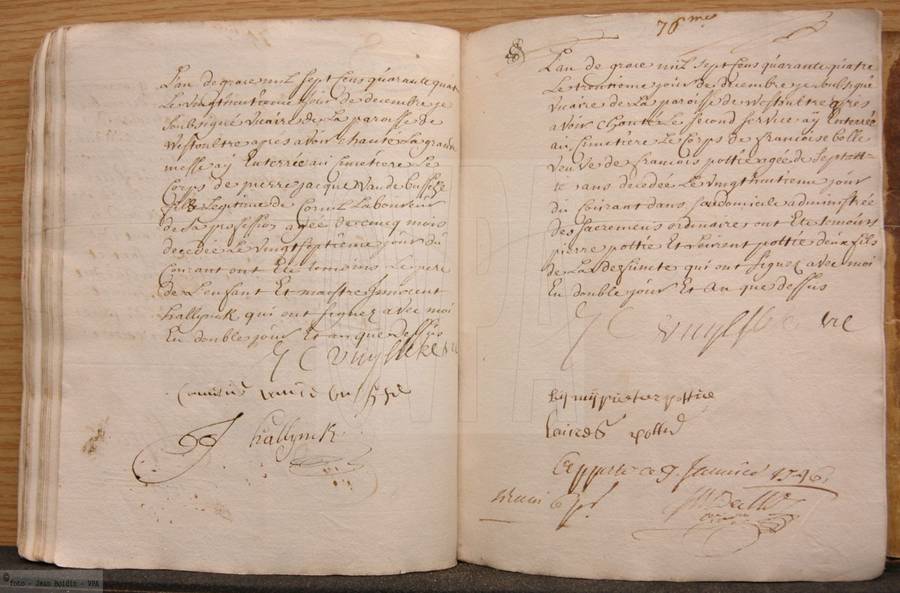 L'an de grace mil sept cens quarante quat
Le vingthuitieme jour de decembre je
soubsigné vicaire de La paroisse de
Westoultre apres avoir chanté La grand
messe aÿ Enterré au simetiere Le
Corps de pierre jacque Vande bussche
fils Legitime de Cornil Laboureur
de sa profession agée de cincq mois
decedée Le vingt septieme jour du
Courant ont Ete temoins Le pere
de L'enfant Et maistre Innocent
hallynck qui ont signez avec moi
En double jour Et an que dessus
vre
hallynck
76
L'an de grace mil sept cens quarante quatre
Le trentieme jour de decembre je soubsigné
vicaire de La paroisse de Westoultre apres
avoir Chanté Le second service aÿ Enterrée
au simetiere Le Corps de francoise bolle
veuve de francois pottié agée de septant-
te ans decedée Le vingthuitieme jour
du Courant dans sa domicile administrée
des sacremens ordinaires ont Ete temoins
pierre pottie Et Leurent pottie deux fils
de La deffuncte qui ont signez avec moi
En double jour Et an que dessus
vre
bij mij pieter pottié
pottié
9